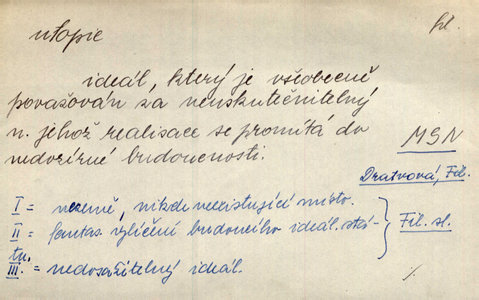 utopie
fil.
ideál, který je všeobecně
považován za neuskutečnitelný
n. jehož realisace se promítá do
nedozírné budoucnosti.
MSN
Dratvová, Fil.
I = nezemě, nikde neexistující místo.
II = fantas. vylíčení budoucího ideál. stá-
tu.
Fil. sl.
III. = nedosažitelný ideál.